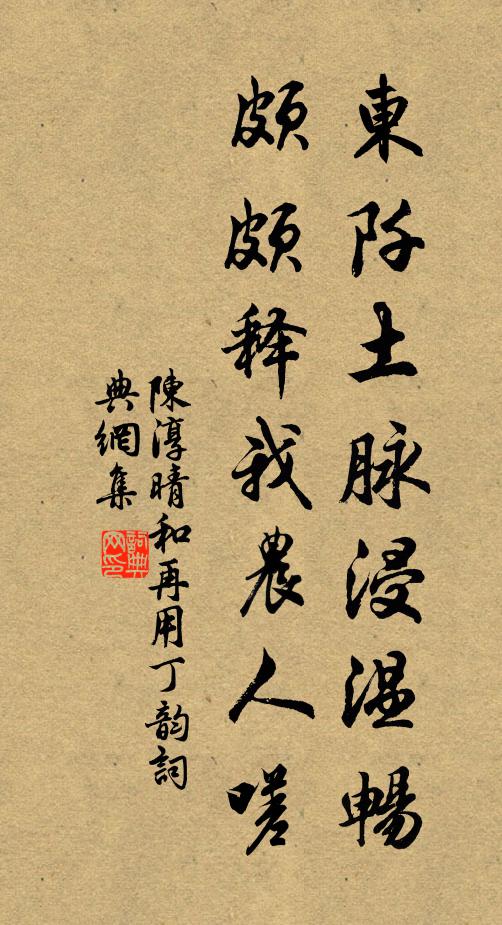 東阡土脉浸温暢
頗頗释我農人嗟
陳淳晴和再用丁韵詞
典網集
詞典网印